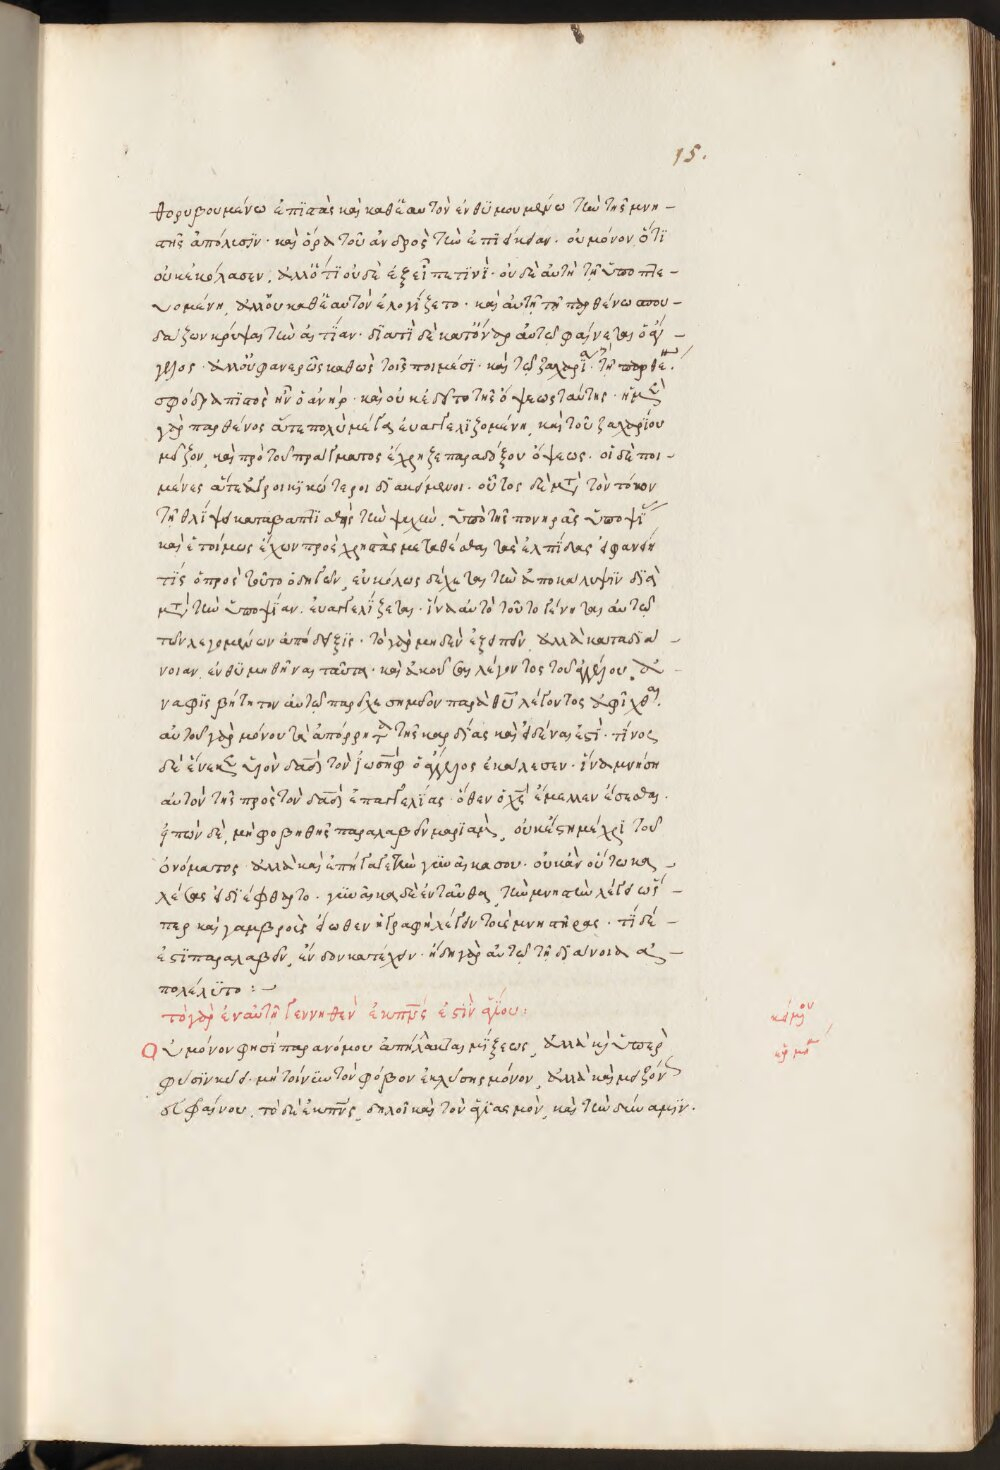 15.
θορυβουμένω ἐπιστὰς καὶ καθ' ἑαυτὸν ἐνθυμουμένω τὴν τῆς μνη-
στῆς ἀπόλυσιν· καὶ ὅρα τοῦ ἀνδρὸς τὴν ἐπιείκειαν. οὐ μόνον ὅτι
οὐκ ἐκόλασεν, ἀλλ' ὅτι οὐδὲ ἐξεῖπέ τινι· οὐδὲ αὐτῇ τῇ ὑποπτε-
υομένη, ἀλλ' οὖν καθ' ἑαυτὸν ἐλογίζετο· καὶ αὐτῇ τῇ παρθένω σπου-
δάζων κρύψαι τὴν αἰτίαν· διατί δὲ κατ' ὄναρ αὐτῶ φαίνεται ὁ ἄγ-
γελος· ἀλλ' οὐ φανερῶς καθὼς τοῖς ποιμέσι· καὶ τῶ ζαχαρία τῇ παρθέ.
σφόδρα πιστὸς ἦν ὁ ἀνήρ· καὶ οὐκ ἐδεῖτο τῆς ὄψεως ταύτης· ἡ μὲν
γὰρ παρθένος ἅτε πολὺ μέγα εὐαγγελιζομένη, καὶ τοῦ ζαχαρίου
μεῖζον, καὶ πρὸ τοῦ πράγματος ἔχρηζε παραδόξου ὄψεως. οἱ δὲ ποι-
μένες ἅτε ἀγροικικώτεροι διακείμενοι. οὗτος δὲ μετὰ τὸν τόκον
τῇ θλίψει καταβαπτισθεὶς τὴν ψυχὴν, ὑπὸ τῆς πονηρᾶς ὑποψί
καὶ ἑτοίμως ἔχων πρὸς χρηστὰς μεταθέσθαι τὰς ἐλπίδας εἰ φανείη
τίς ὁ πρὸς τοῦτο ὁδηγῶν, εὐκόλως δέχεται τὴν ἀποκάλυψιν διὰ
μετὰ τὴν ὑποψίαν. εὐαγγελίζεται· ἵνα αὐτὸ τοῦτο γένηται αὐτῶ
τῶν λεγομένων ἀπόδειξις· τὸ γὰρ μηδὲν ἐξειπεῖν, ἀλλὰ κατὰ διά-
νοιαν ἐνθυμηθῆναι ταῦτα· καὶ ἀκοῦσαι λέγοντος τοῦ ἀγγέλου, ἀ-
ναμφισβήτητον αὐτῶ παρεῖχε σημεῖον παρὰ θεοῦ λέγοντος ἀφῖχθαι.
αὐτοῦ γὰρ μόνου τὰ ἀπόρρητα τῆς καρδίας καὶ εἰδέναι ἐστί. τίνος
δὲ ἕνεκεν υἱὸν δαδ τὸν ἰωσὴφ ὁ ἄγγελος ἐκάλεσεν· ἵνα μνήση
αὐτὸν τῆς πρὸς τὸν δαδ ἐπαγγελίας· ὅθεν ὁ χς ἔμελλεν ἔσεσθαι.
εἰπὼν δὲ, μὴ φοβηθῆς παραλαβεῖν μαριὰμ, οὐκ ἔστη μέχρι τοῦ
ὀνόματος ἀλλὰ καὶ ἐπήγαγε τὴν γυναῖκά σου· οὐκ ἂν οὕτω κα-
λέσας εἰ διέφθαρτο· γυναῖκα δὲ ἐνταῦθα, τὴν μνηστὴν λέγει ὥσ-
περ καὶ γαμβροὺς εἴωθεν ἡ γραφὴ λέγειν τοὺς μνηστῆρας. τί δέ
ἐστι παραλαβεῖν, ἔνδον κατέχειν· ἤδη γὰρ αὐτῶ τῇ διανοία ἀ-
πολέλυτο:
τὸ γὰρ ἐν αὐτῇ γεννηθὲν ἐκ πνς ἐστὶν ἁγίου:
Οὐ μόνον φησὶ παρανόμου ἀπήλλακται μίξεως, ἀλλὰ καὶ ὑπὲρ
φύσιν κύει· μὴ τοίνυν τὸν φόβον ἐκλύσης μόνον, ἀλλὰ καὶ μεῖζόν
φαίνου, τὸ δὲ ἐκ πνς, δηλοῖ καὶ τὸν ἁγιασμὸν, καὶ τὴν δύναμιν.